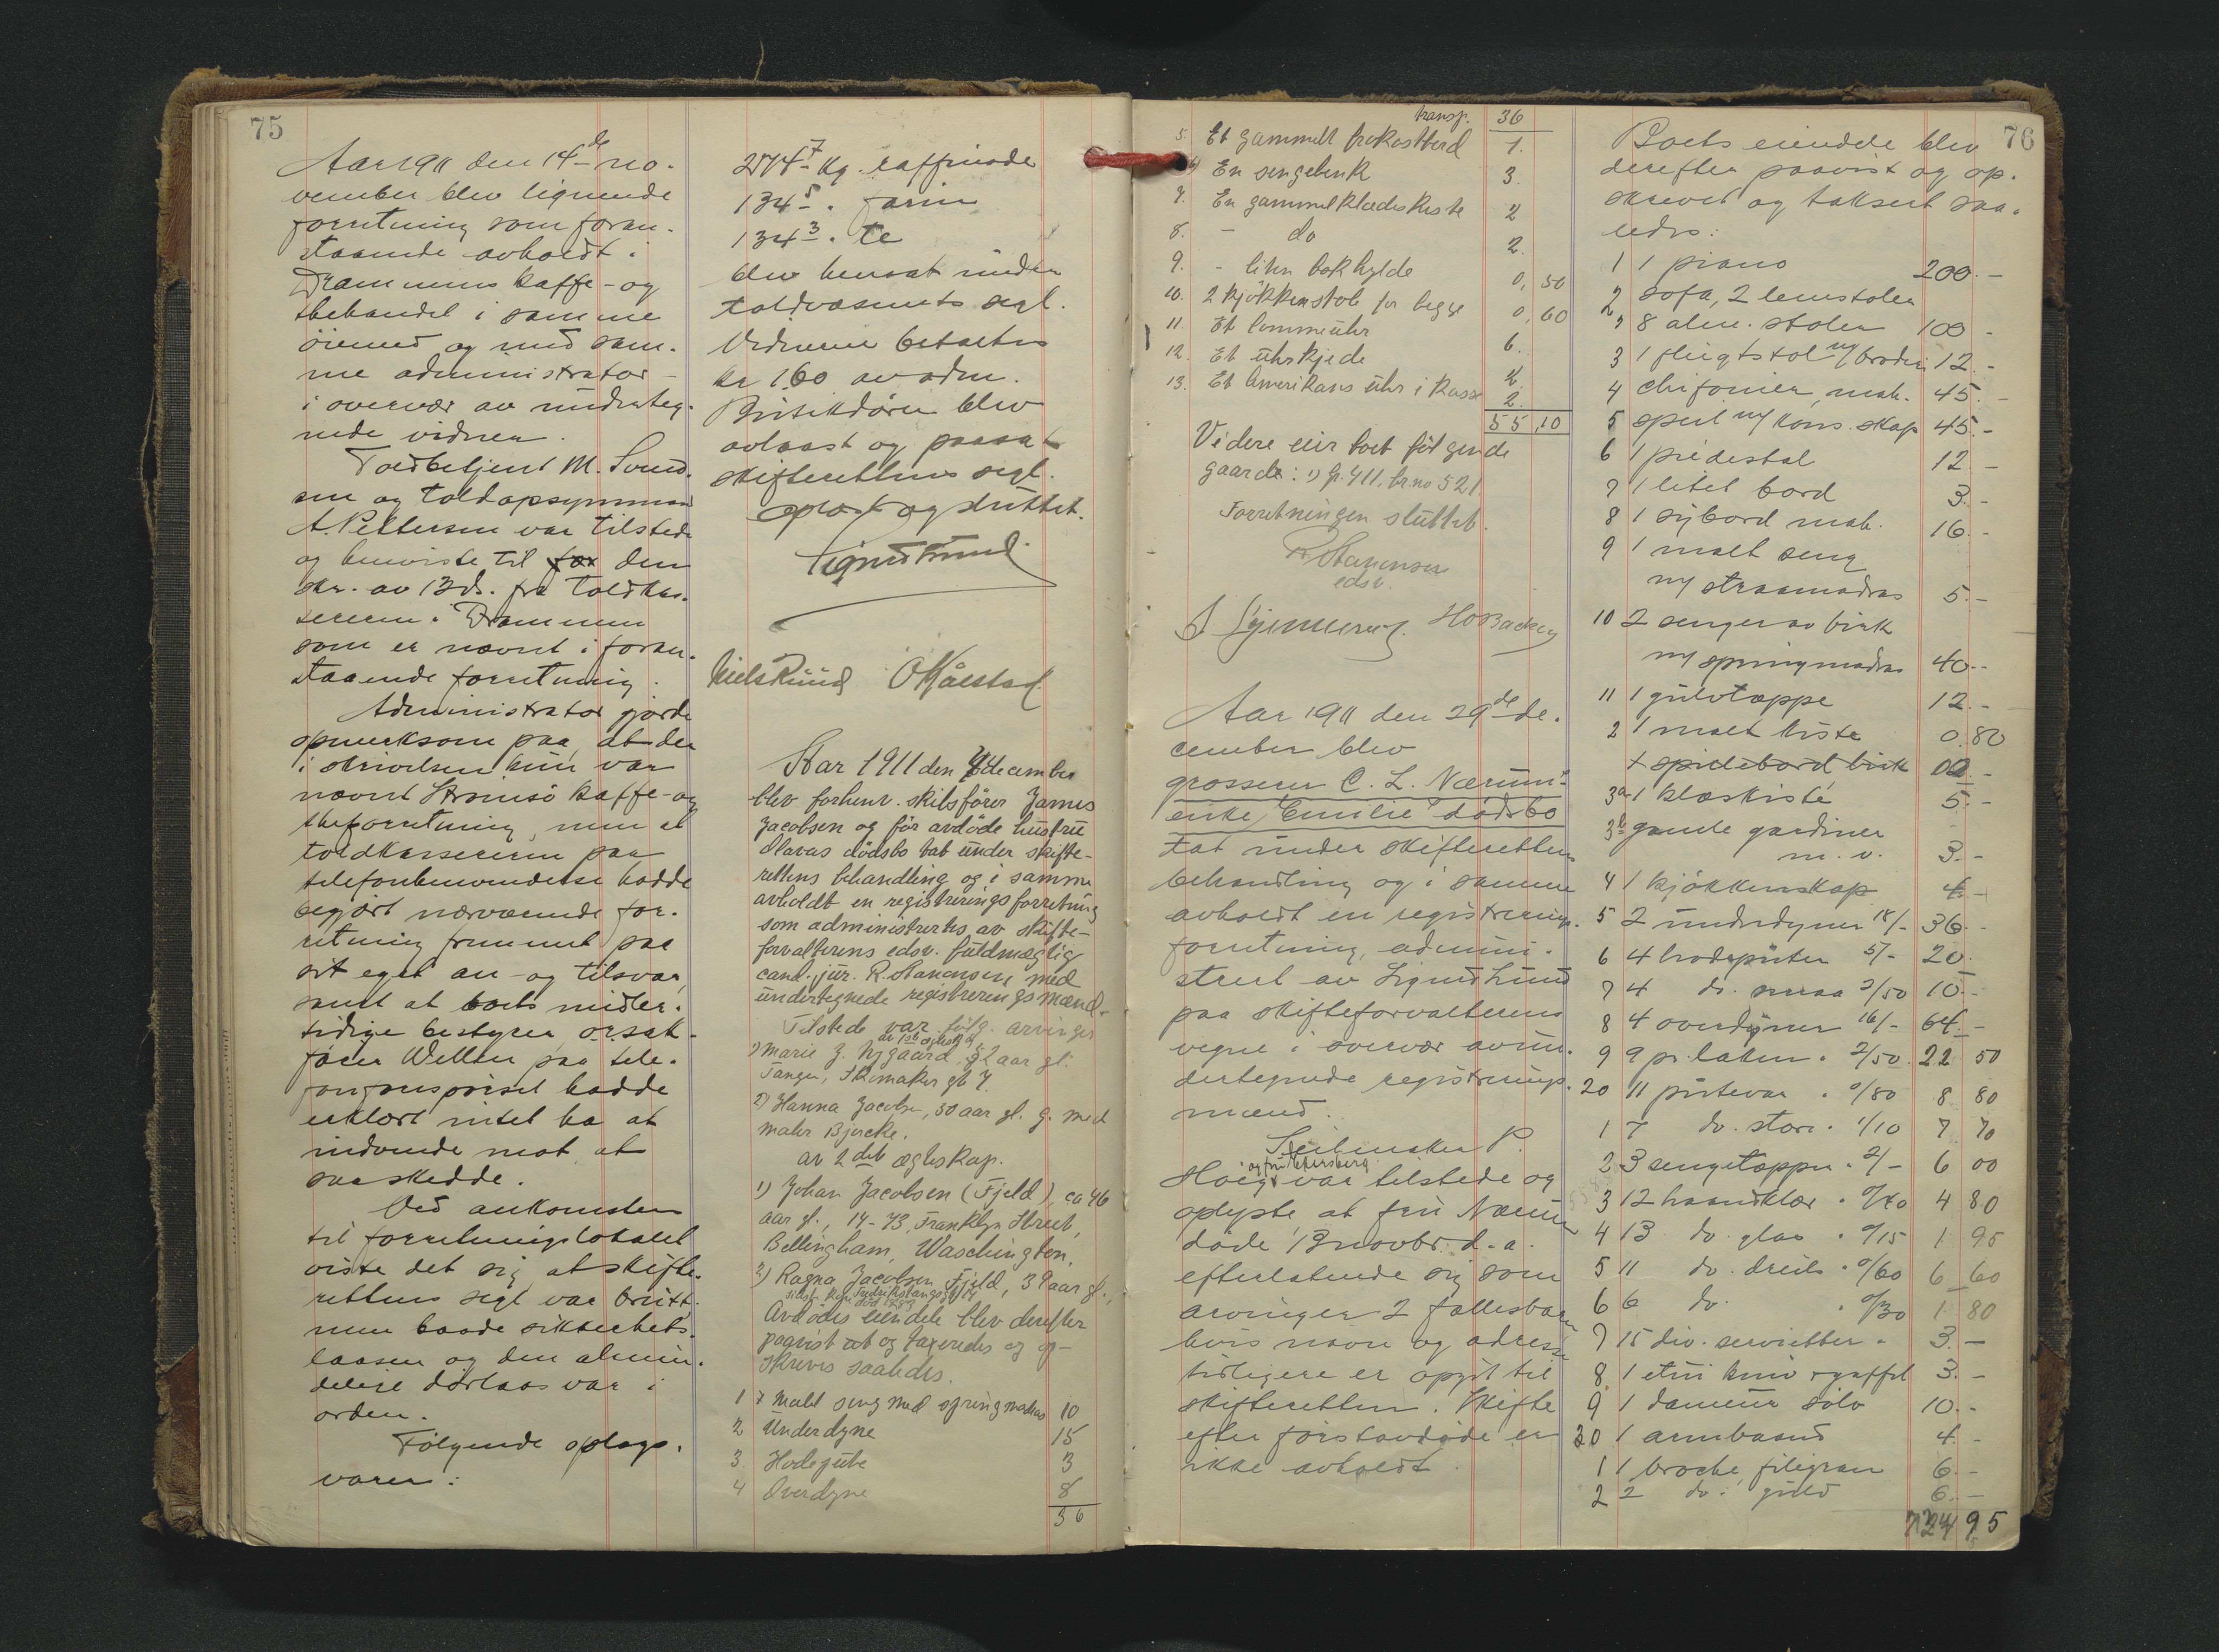 75
Aar 1911 den 14de no-
vember blev lignende
forretning som foran-
staaende avholdt i
Drammens kaffe- og
thehandel i samme
öiemed og med sam-
me administrator -
i overvær av underteg-
nede vidner.
Toldbetjent M. Svend-
sen og toldopsynmand
A. Pettersen var tilstede
og henviste til den
skr. av 13 ds. fra toldkas-
sereren i Drammen
som er nævnt i foran-
staaende forretning.
Administrator gjorde
opmerksom paa, at der
i skrivelsen kun var
nævnt Strömsö kaffe- og
theforretning, men at
toldkassereren paa
telefonhenvendelse hadde
begjært nærværende for-
retning fremmet paa
sit eget an- og tilsvar,
samt at boets midler-
tidige bestyrer, o.r.sak-
förer Wellen paa tele-
fonforespörsel hadde
erklært intet ha at
indvende mot at
saa skedde.
Ved ankomsten
til forretningslokalet
viste det sig, at skifte-
rettens segl var brutt,
men baade sikkerhets-
laasen og den almin-
delige dörlaas var i
orden.
Fölgende oplags-
varer:
2714 7 kg. raffinade
134 5 " farin
134 3 " te
blev hensat under
toldvæsenets segl.
Vidnerne betaltes
kr 1.60 av adm.
Butikdören blev
avlaast og paasat
skifterettens segl.
oplæst og sluttet.
Sigurd Lund
Niels Ruud O Kålstad
Aar 1911 den december
blev forhenv. skibsförer James
Jacobsen og för avdöde hustru
Olavas dödsbo tat under skifte-
rettens behandling og i samme
avholdt en registreringsforretning
som administrertes av skifte-
forvalterens edsv. fuldmægtig
cand. jur. R. Hanonsen med
undertegnede registreringsmænd.
Tilstede var fölg. arvinger
av 1ste egteskap
1) Marie J. Nygaard, 52 aar gl.
Tangen, Skomaker gt 7.
2) Hanna Jacobsen, 50 aar gl. g. med
maler Bjercke.
av 2det egteskap.
1) Johan Jacobsen (Fjeld), ca 46
aar gl., 14-73, Franklyn Street,
Bellingham, Waschington,
2) Ragna Jacobsen Fjeld, 39 aar gl.,
Avdödes eiendele blev derefter
paavist at og taxeredes og op-
skreves saaledes.
1 1 Malt seng med springmadras 10
2 Underdyne 15
3. Hodepute 3
4 Overdyne 8
36
transp. 36
5. Et gammelt frokostbord 1.
6) En sengebenk 3.
7. En gammel klædeskiste 2
8. - do 2.
9. - liten bokhylde 0,50
10. 2 kjökkenstole for begge 0,60
11. Et lommeuhr 6.
12. Et uhrkjede 2.
13. Et Amerikans uhr i kasse 2.
55,10
Videre eier boet fölgende
gaarde: 1) Gr. 411, br.no 521.
Forretningen sluttet.
R Hanonsen
edsv.
H Backer
Aar 1911 den 29de de-
cember blev
grosserer C. L. Nærum's
enke, Emilie's dödsbo
tat under skifterettens
behandling og i samme
avholdt en registrerings-
forretning, admini-
streret av Sigurd Lund
paa skifteforvalterens
vegne i overvær av un-
dertegnede registrerings-
mænd.
Seilmaker P.
Höeg var tilstede og
oplyste, at fru Nærum
döde 13 novbr. d.a.
efterlatende sig som
arvinger 2 fællesbarn
hvis navn og adresse
tidligere er opgit til
skifteretten. Skifte
efter förstavdöde er
ikke avholdt.
76
Boets eiendele blev
derefter paavist og op-
skrevet og taksert saa-
ledes:
1 1 piano 200.-
2 sofa, 2 lenestoler
" 8 alm. stoler 100 -
3 1 flugtstol m/ broderi 12.-
4 chifonier, mah. 45.-
5 speil m/ kons. skap 45.-
6 1 piedestal 12.-
7 1 litet bord 3.-
8 1 sybord mah. 16.-
9 1 malt seng
m/ straamadras 5.-
10 2 senger av birk
m/ springmadras 40.-
11 1 gulvtæppe 12.-
2 1 malt kiste 0.80
1 spillebord birk
3a 1 klæskiste 5.-
3b gamle gardiner
m.v. 3.-
4 1 kjökkenskap 4.-
5 2 underdyner 18/- 36.-
6 4 hodeputer 5/- 20.
7 4 do. smaa 2/50 10.-
8 4 overdyner 16/- 64.-
9 9 pr. laken . 2/50 22 50
20 11 putevar . 0/80 8 80
1 7 do. store . 1/10 7 70
2 3 sengetæpper . 2/- 6 00
3 12 haandklær . 0/40 4 80
4 13 do. glas . 0/15 1 95
5 11 do. dreils . 0/60 6 60
6 6 do. . 0/30 1 80
7 15 div. servietter . 3.-
8 1 etui kniv + gaffel 3.-
9 1 dameur sölv 10.-
30 1 armbaand 4.-
1 1 broche, filigran 6.-
2 2 do. guld 6.-
724 95